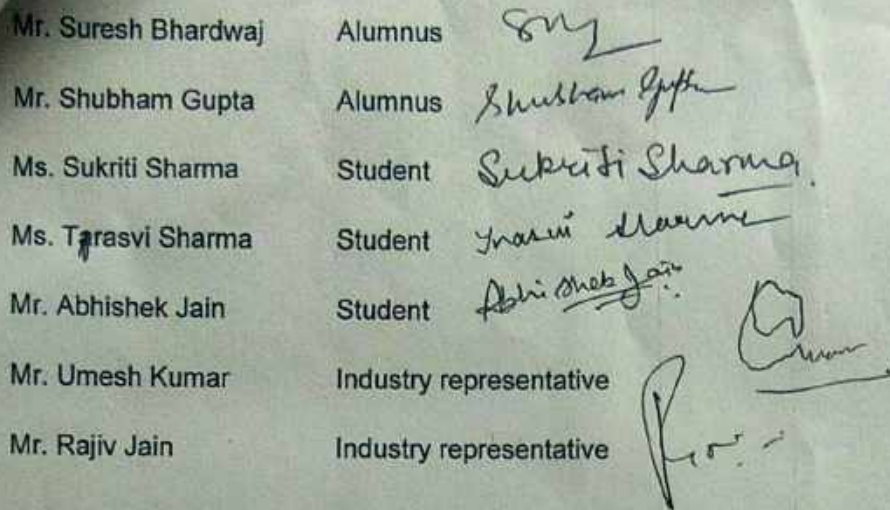 Mr. Suresh Bhardwaj Alumnus
Mr. Shubham Gupta Alumnus Shubham Gupta
Ms. Sukriti Sharma Student Sukriti Sharma
Ms. Tarasvi Sharma Student Sharma
Mr. Abhishek Jain Student Abhishek Jain
Mr. Umesh Kumar Industry representative
Mr. Rajiv Jain Industry representative